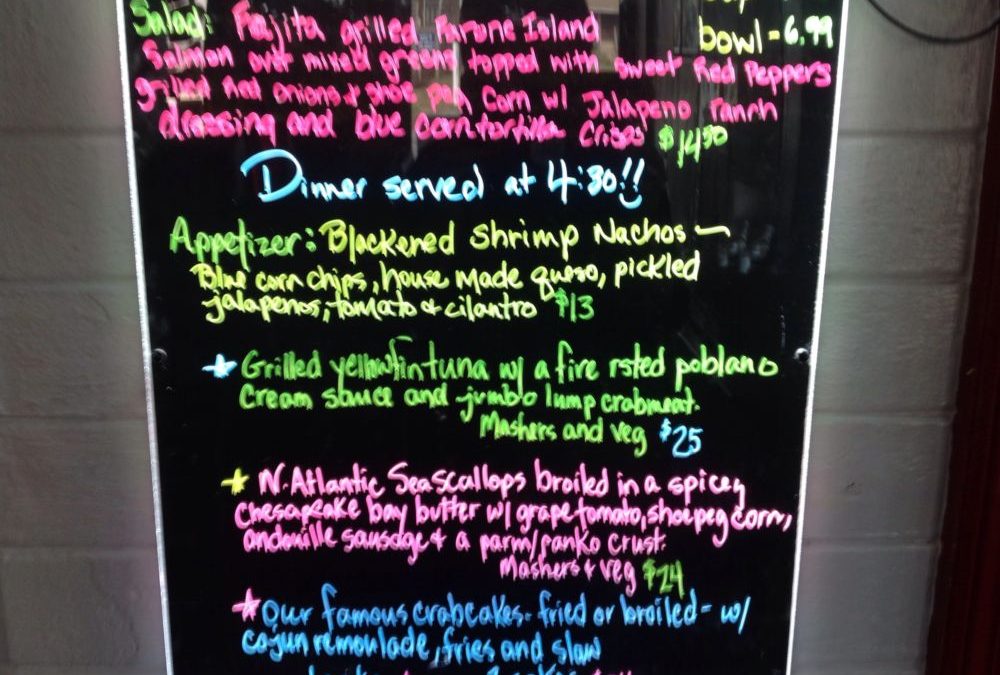 bowl = 6.99
Salad: Fajita grilled Faroe Island
Salmon over mixed greens topped with sweet Red Peppers
grilled Red onions & shoe peg Corn w/ Jalapeno ranch
dressing and blue corn tortilla crisps $14.50
Dinner served at 4:30!!
Appetizer: Blackened Shrimp Nachos —
Blue corn chips, house made queso, pickled
jalapenos, tomato & cilantro $13
Grilled yellowfin tuna w/ a fire rsted poblano
Cream sauce and jumbo lump crabmeat.
Mashers and veg $25
N. Atlantic Sea Scallops broiled in a spicey
Chesapeake bay butter w/ grape tomato, shoepeg corn,
andouille sausage & a parm/panko crust.
Mashers & veg $24
Our famous crabcakes - fried or broiled - w/
cajun remoulade, fries and slaw